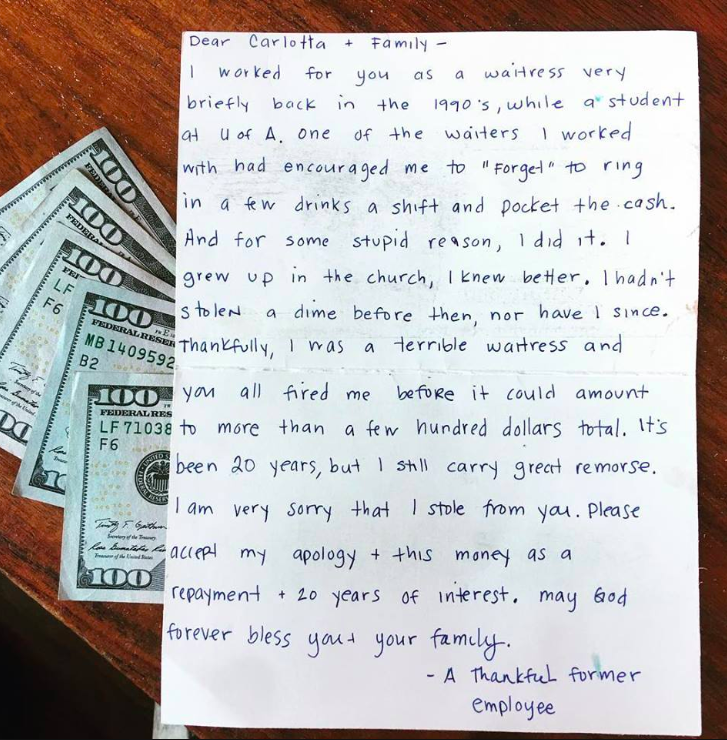 Dear Carlotta + Family -
I worked for you as a waitress very
briefly back in the 1990's, while a student
at U of A. One of the waiters I worked
with had encouraged me to "Forget" to ring
in a few drinks a shift and pocket the cash.
And for some stupid reason, I did it. I
grew up in the church, I knew better. I hadn't
stolen a dime before then, nor have I since.
Thankfully, I was a terrible waitress and
you all fired me before it could amount
to more than a few hundred dollars total. It's
been 20 years, but I still carry great remorse.
I am very sorry that I stole from you. Please
accept my apology + this money as a
repayment + 20 years of interest. May God
forever bless you + your family.
- A Thankful former
employee
100
100
100
LF
F6
100
FEDERAL RESER
MB 1409592
B2
100
FEDERAL RES
LF 71038
F6
Secretary of the Treasury
Treasurer of the United States
100